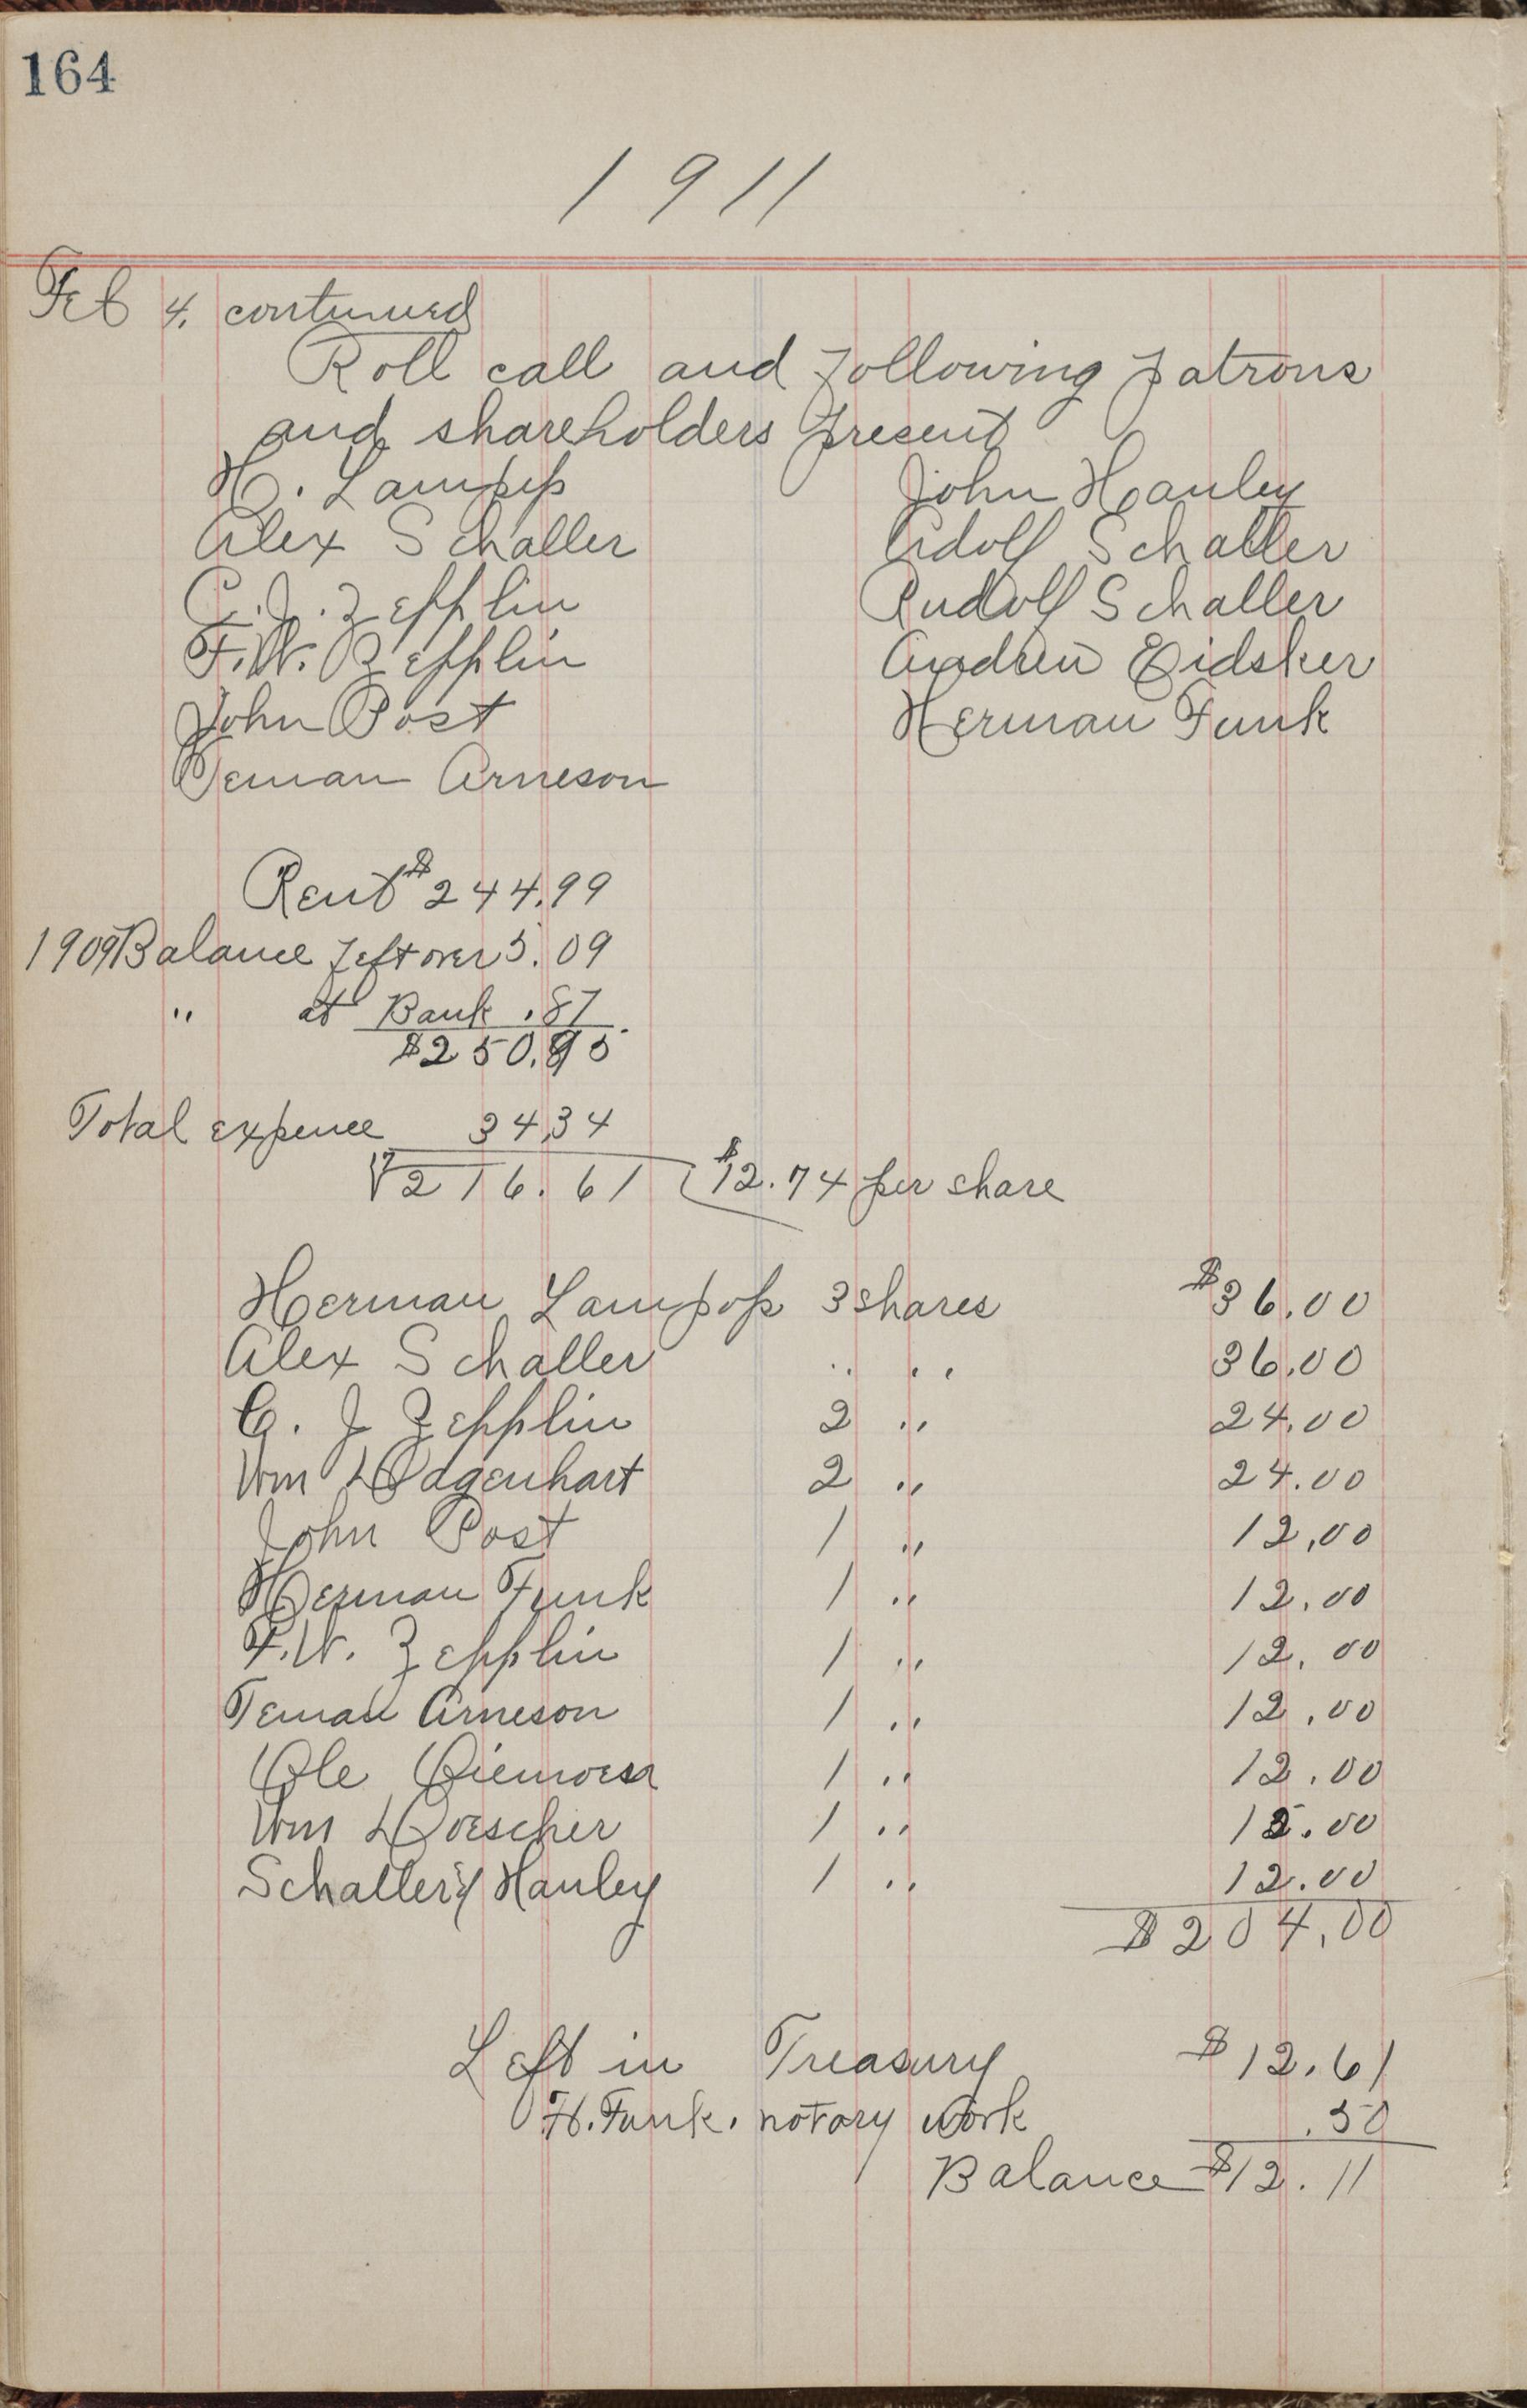 164
1911
Feb 4. continued
Roll call and following patrons
and shareholders present
H. Lampop John Hanley
Alex Schaller Adolf Schaller
C. J. Zepplin Rudolf Schaller
F. W. Zepplin Andrew Eidsker
John Post Herman Funk
Teman Arneson
Rent $244.99
1909 Balance left over 5.09
" at Bank .87
$250.95
Total expence 34.34
17 216.61 $12.74 per share
Herman Lampop 3 shares $36.00
Alex Schaller " " 36.00
C. J Zepplin 2 " 24.00
Wm Wagenhart 2 " 24.00
John Post 1 " 12.00
Herman Funk 1 " 12.00
F. W. Zepplin 1 " 12.00
Teman Arneson 1 " 12.00
Ole 1 " 12.00
Wm Doescher 1 " 12.00
Schaller & Hanley 1 " 12.00
$204.00
Left in Treasury $12.61
H. Funk. notary work .50
Balance $12.11